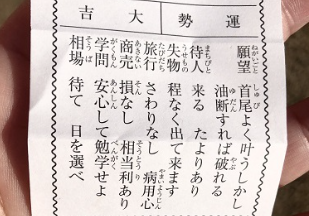 運勢 大吉
願望 首尾よく叶うしかし油断すれば破れる
待人 来る たよりあり
失物 程なく出て来ます
旅行 さわりなし 病用心
商売 損なし 相当利あり
学問 安心して勉学せよ
相場 待て 日を選べ